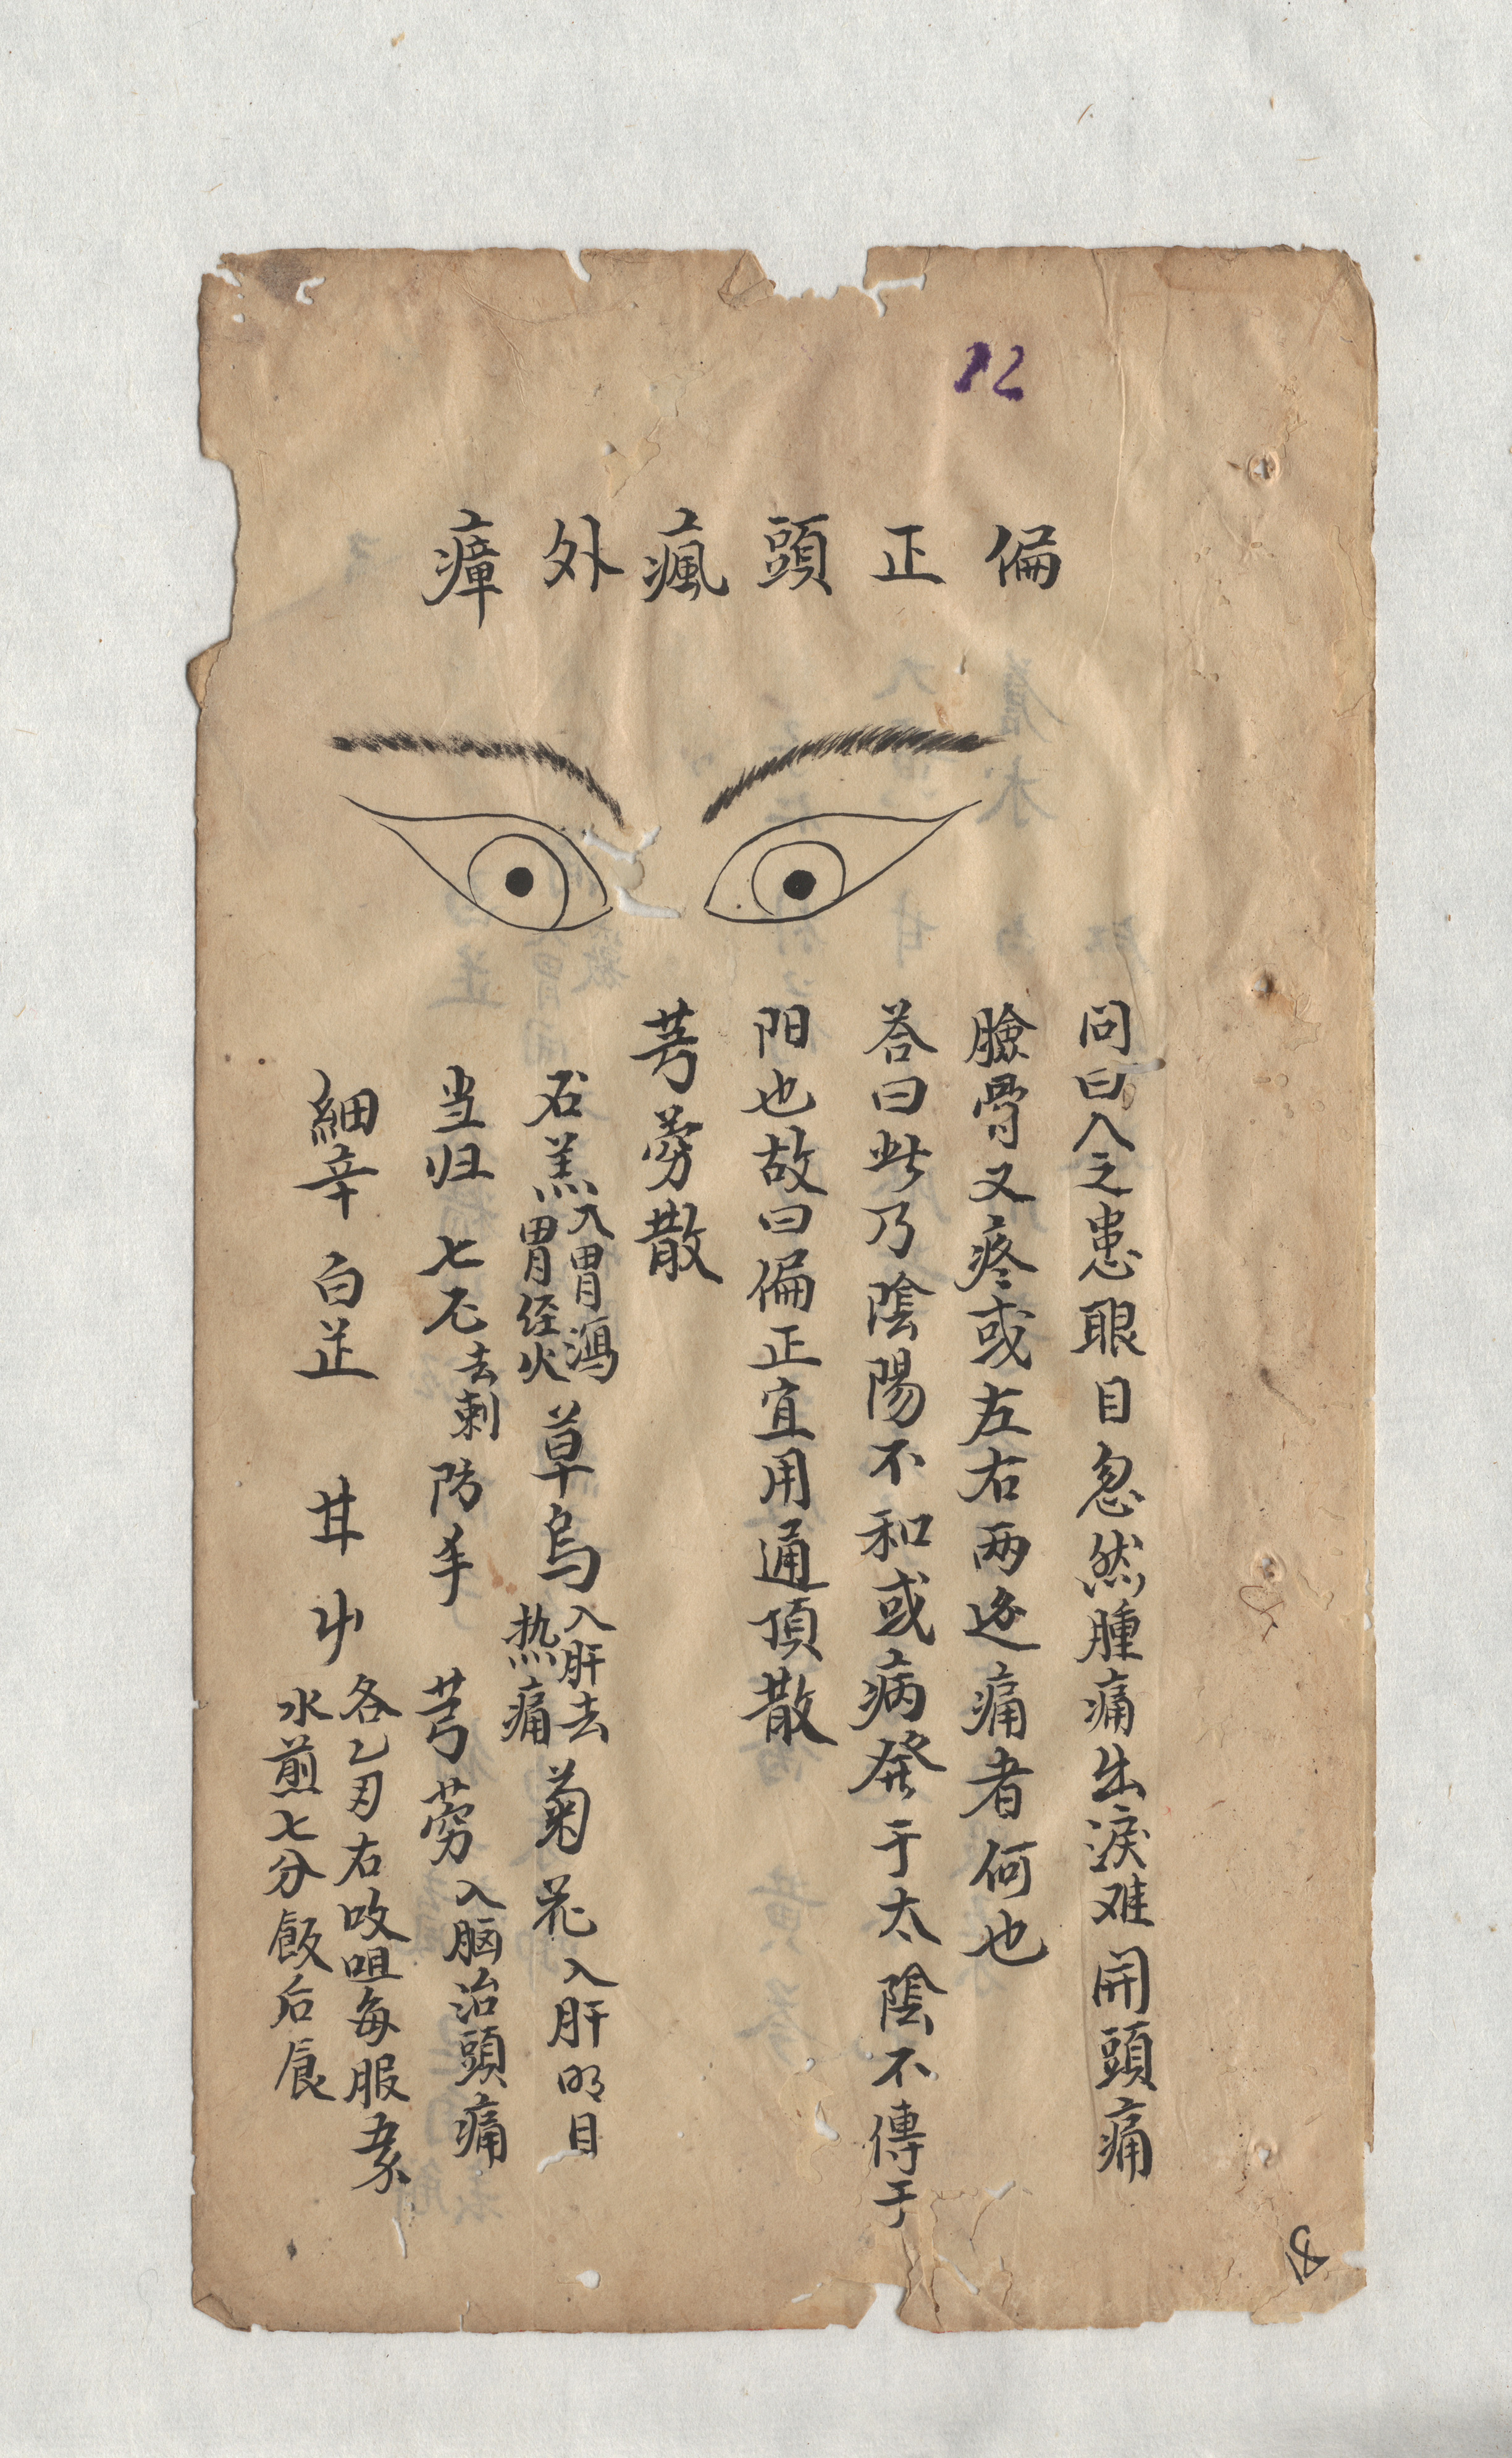 12
偏正頭瘋外瘴
問曰人之患眼目忽然腫痛出淚难開頭痛
臉骨又疼或左右两边痛者何也
荅曰此乃陰陽不和或病發于太陰不傳于
阳也故曰偏正宜用通頂散
芎藭散
石羔入胃瀉胃经火 草烏入肝去热痛 菊花入肝明目
当归 七厘去刺 防丰 芎藭入脑治頭痛
細辛 白芷 甘艸 各乙另右㕮咀每服
水煎七分飯后